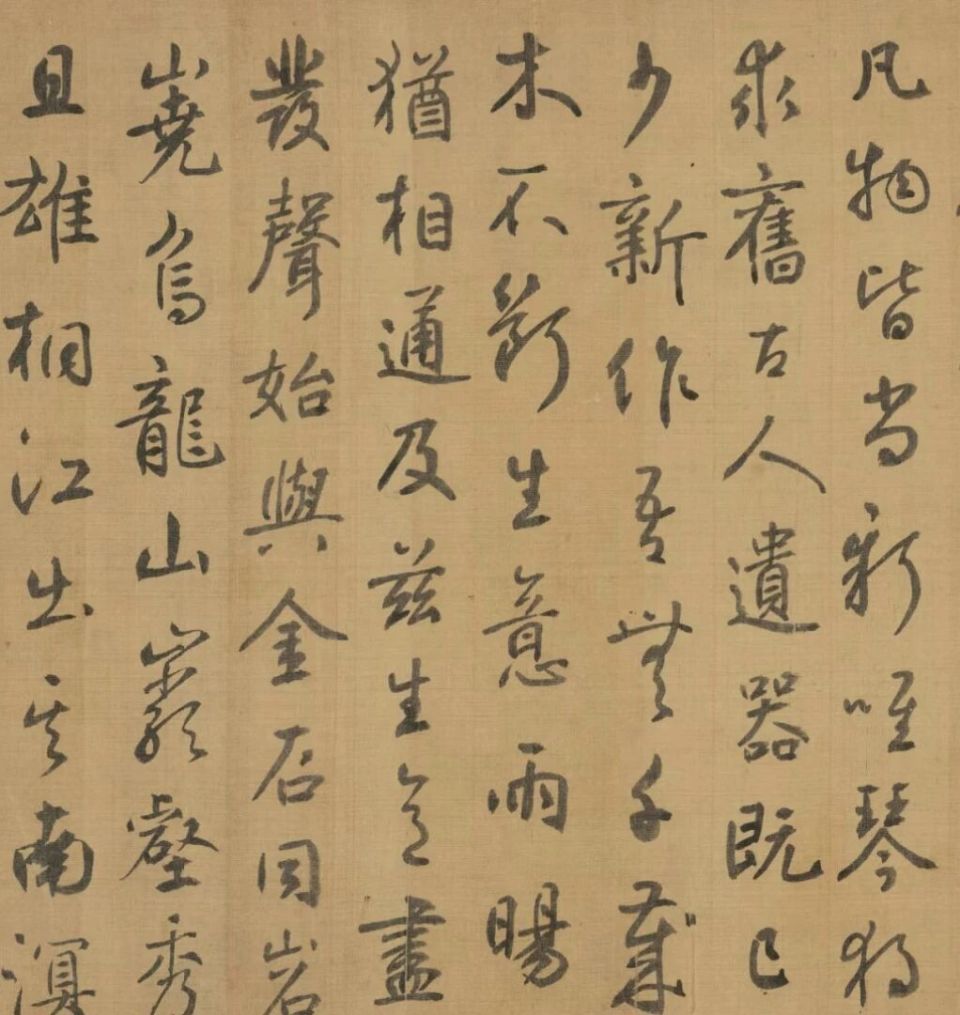 凡物皆尚新唯琴獨
求舊古人遺器既已
少新作吾無千歲
木不斷生意雨暘
猶相通及茲生意盡
發聲始與金石同岩
嶢烏龍山巖壑秀
且雄桐江出其南溟